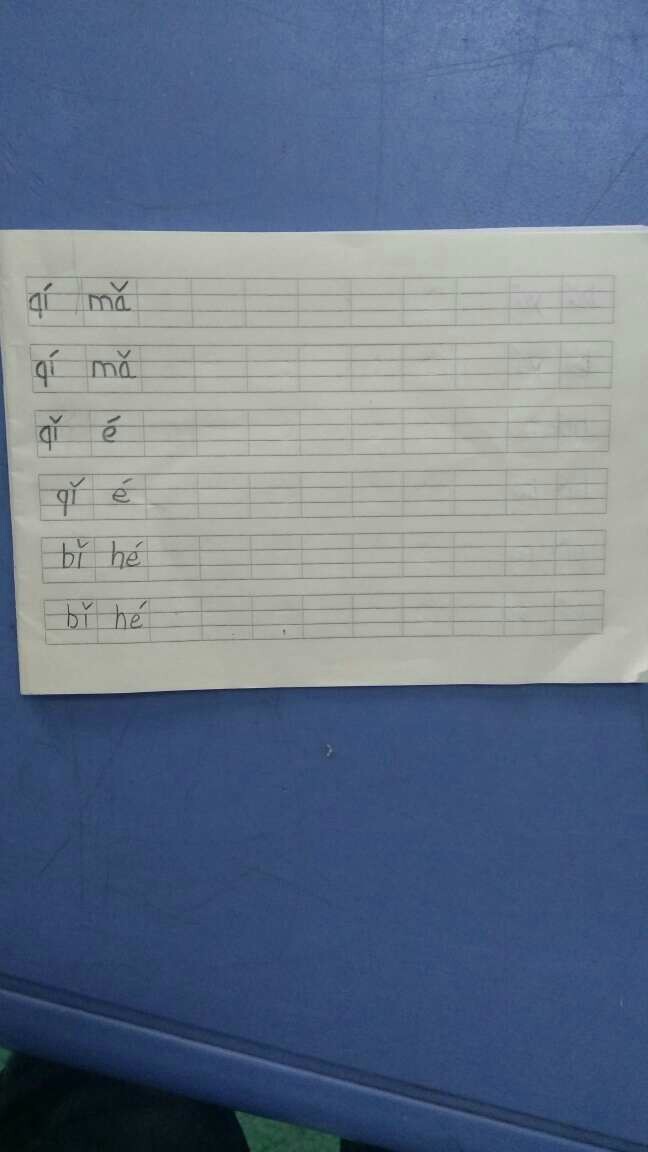 qí mǎ
qí mǎ
qǐ é
qǐ é
bǐ hé
bǐ hé